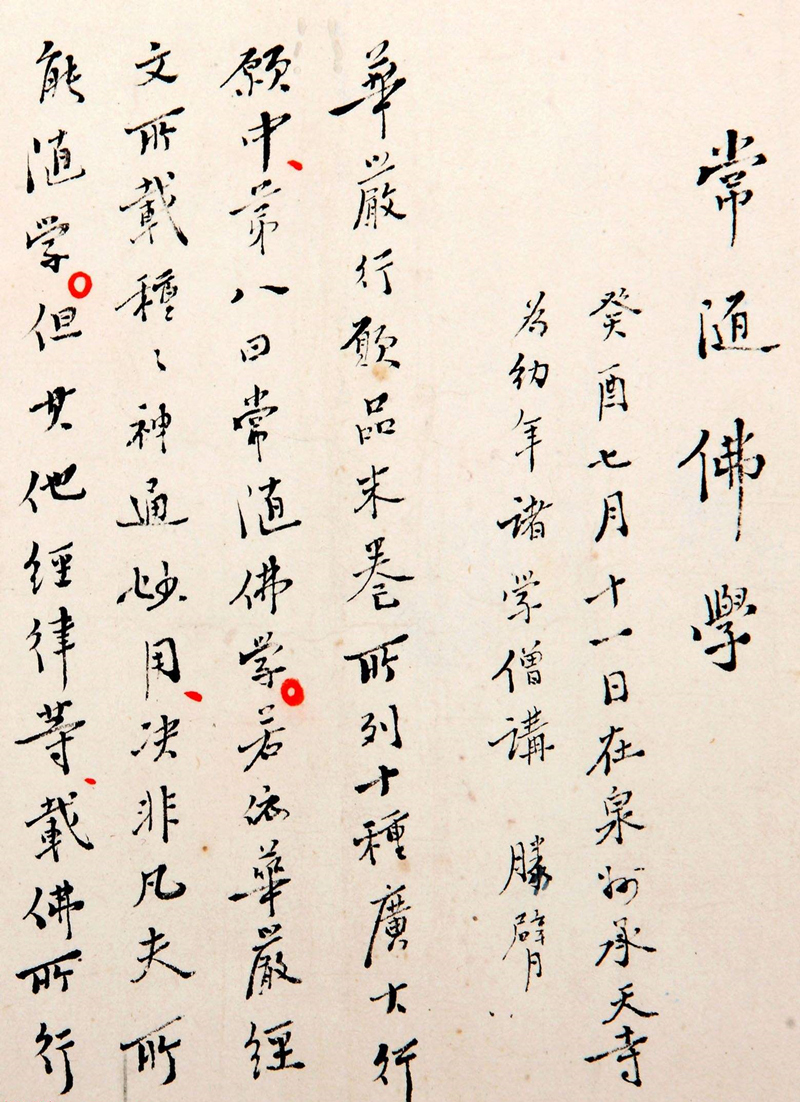 常随佛學
癸酉七月十一日在泉州承天寺
为幼年諸学僧講 勝臂
華嚴行願品末卷所列十種廣大行
願中、第八曰常随佛学。若依華嚴經
文所載種々神通妙用、决非凡夫所
能随学。但其他經律等、載佛所行